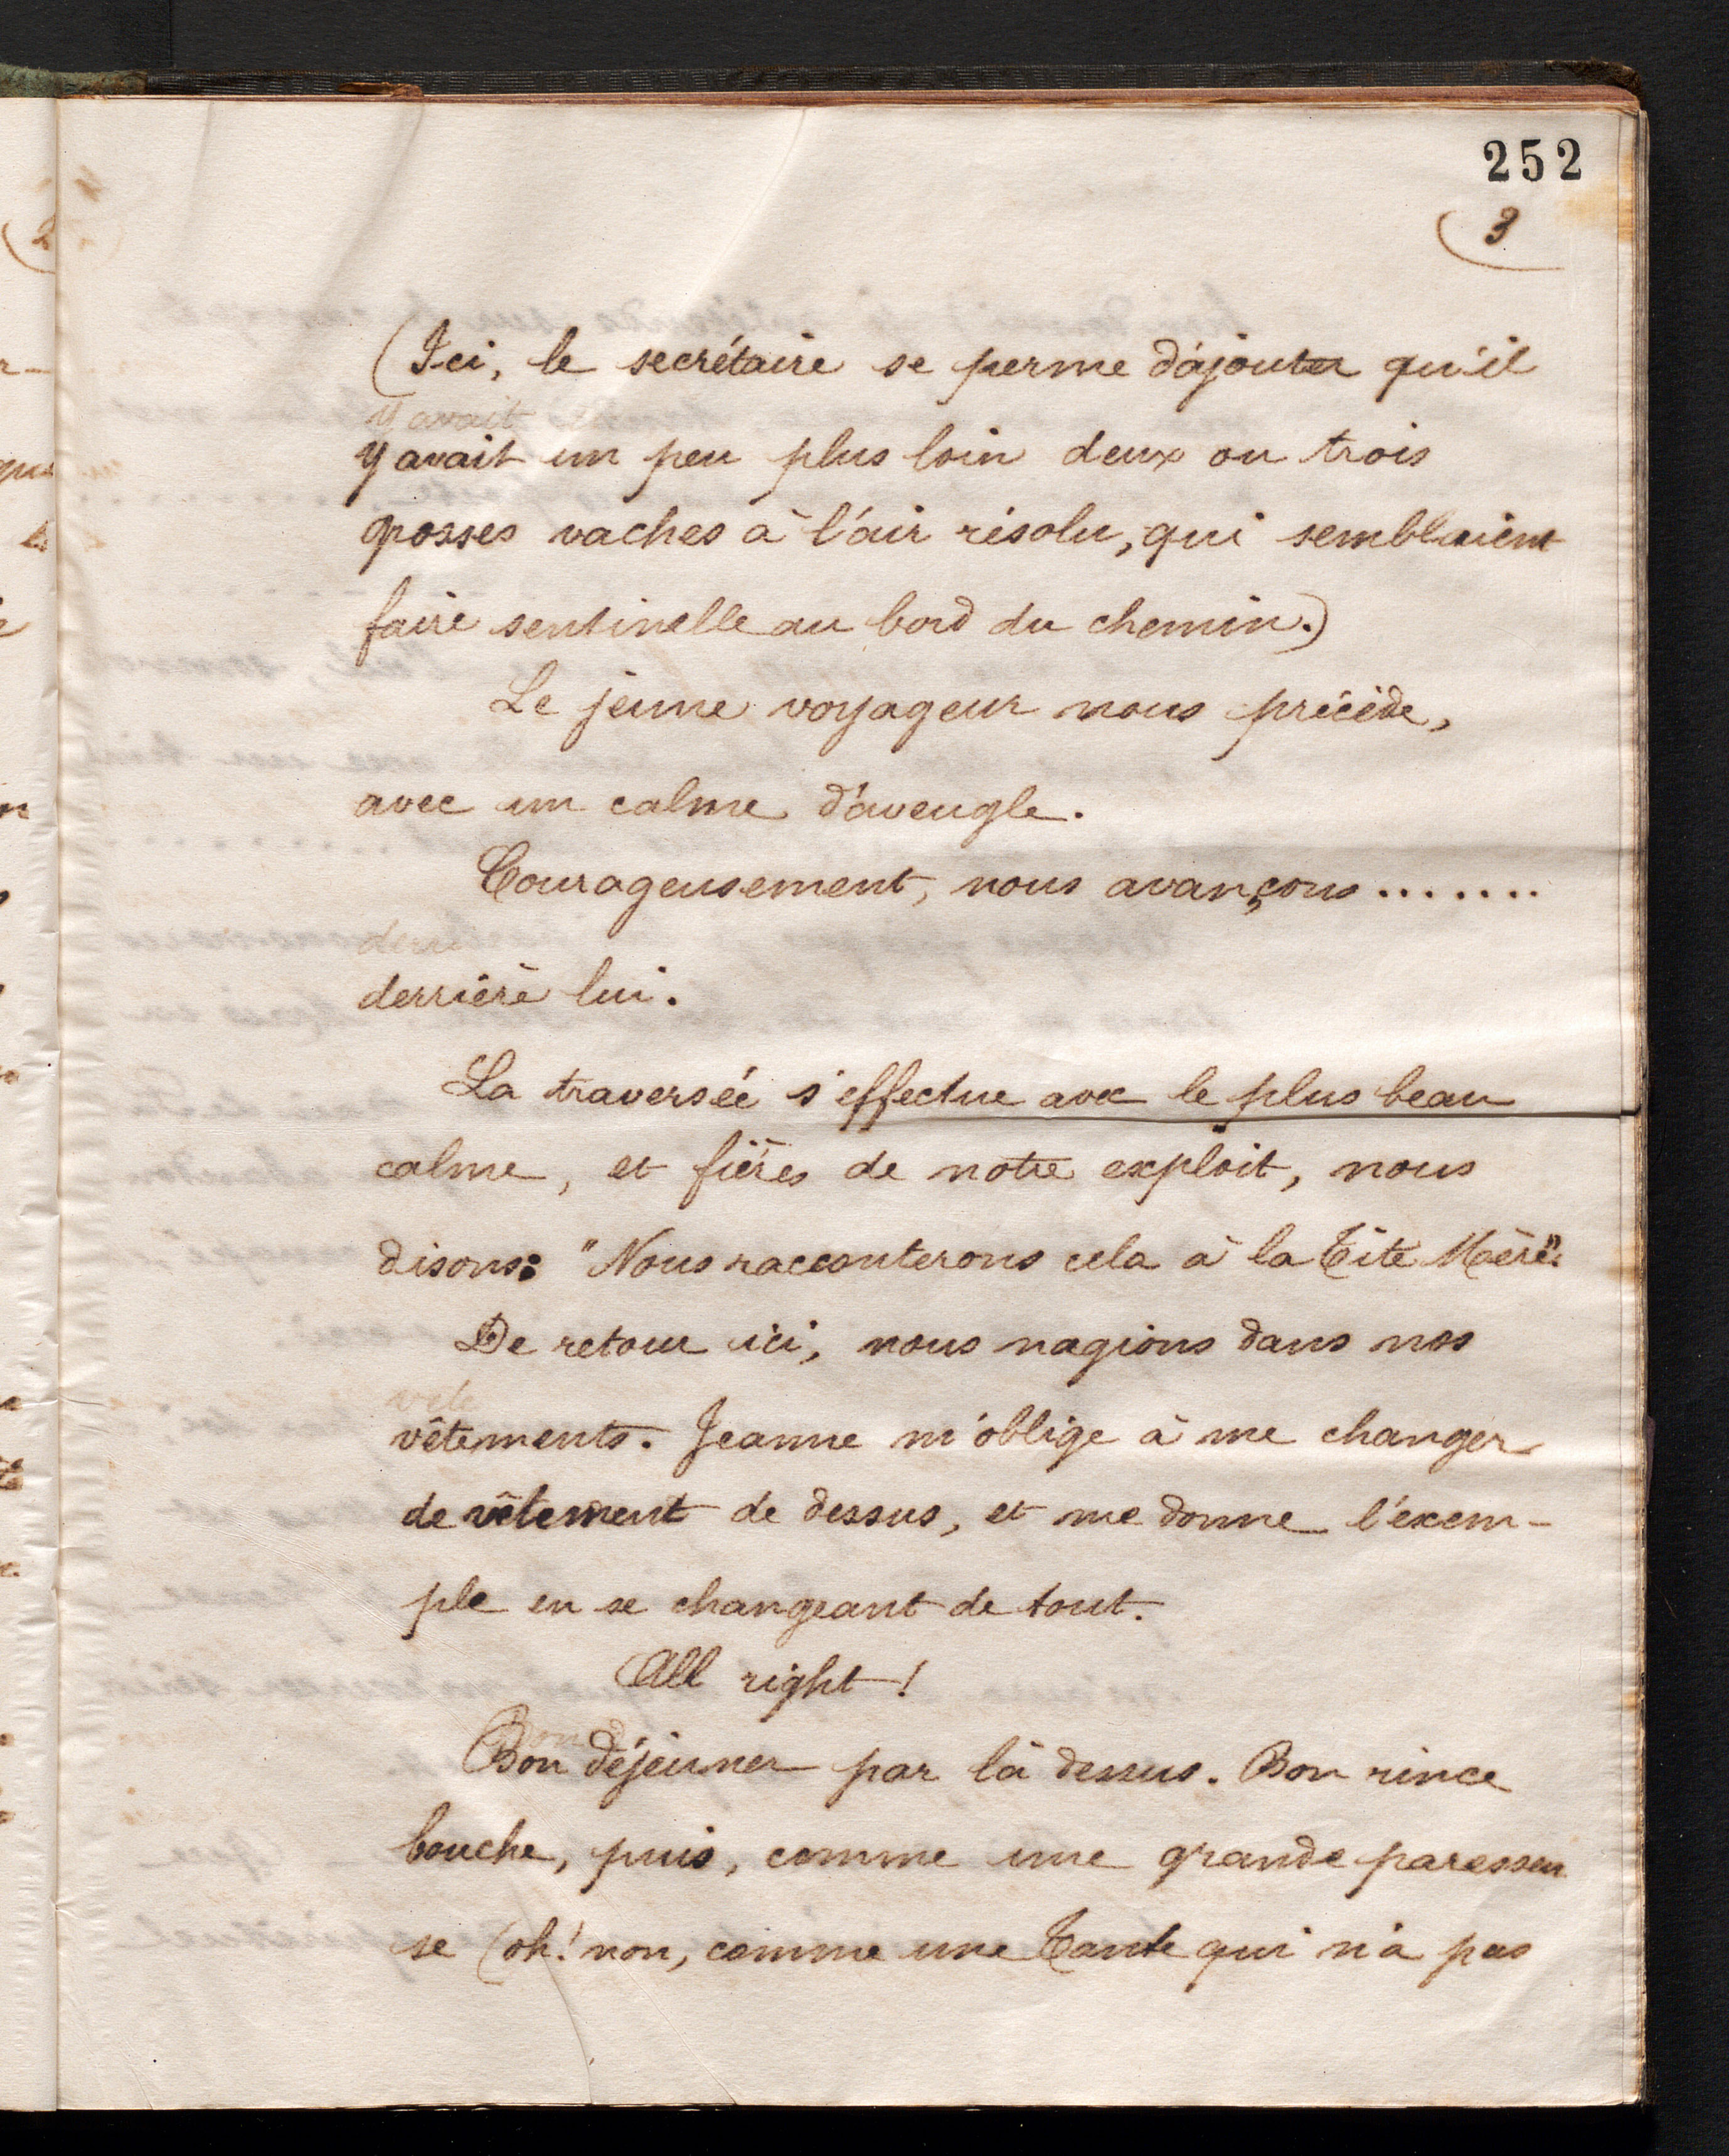 252
3
(Ici, le secrétaire se perme d'ajouter qu'il
y avait un peu plus loin deux ou trois
grosses vaches à l'air résolu, qui semblaient
faire sentinelle au bord du chemin.)
Le jeune voyageur nous précède,
avec un calme d'aveugle.
Courageusement, nous avançons.......
derrière lui.
La traversée s'effectue avec le plus beau
calme, et fières de notre exploit, nous
disons: "Nous racconterons cela à la Tite Mère".
De retour ici, nous nagions dans nos
vêtements. Jeanne m'oblige à me changer
de vêtement de dessus, et me donne l'exem-
ple en se changeant de tout.
All right!
Bon déjeuner par là dessus. Bon rince
bouche, puis, comme une grande paresseu
se (oh! non, comme une Tante qui n'a pas